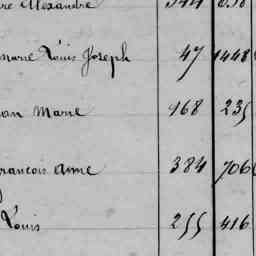 re Alexandre 544 858
marie Louis Joseph 47 1448
an Marie 168 235
rancois Anne 384 706
Louis 255 416